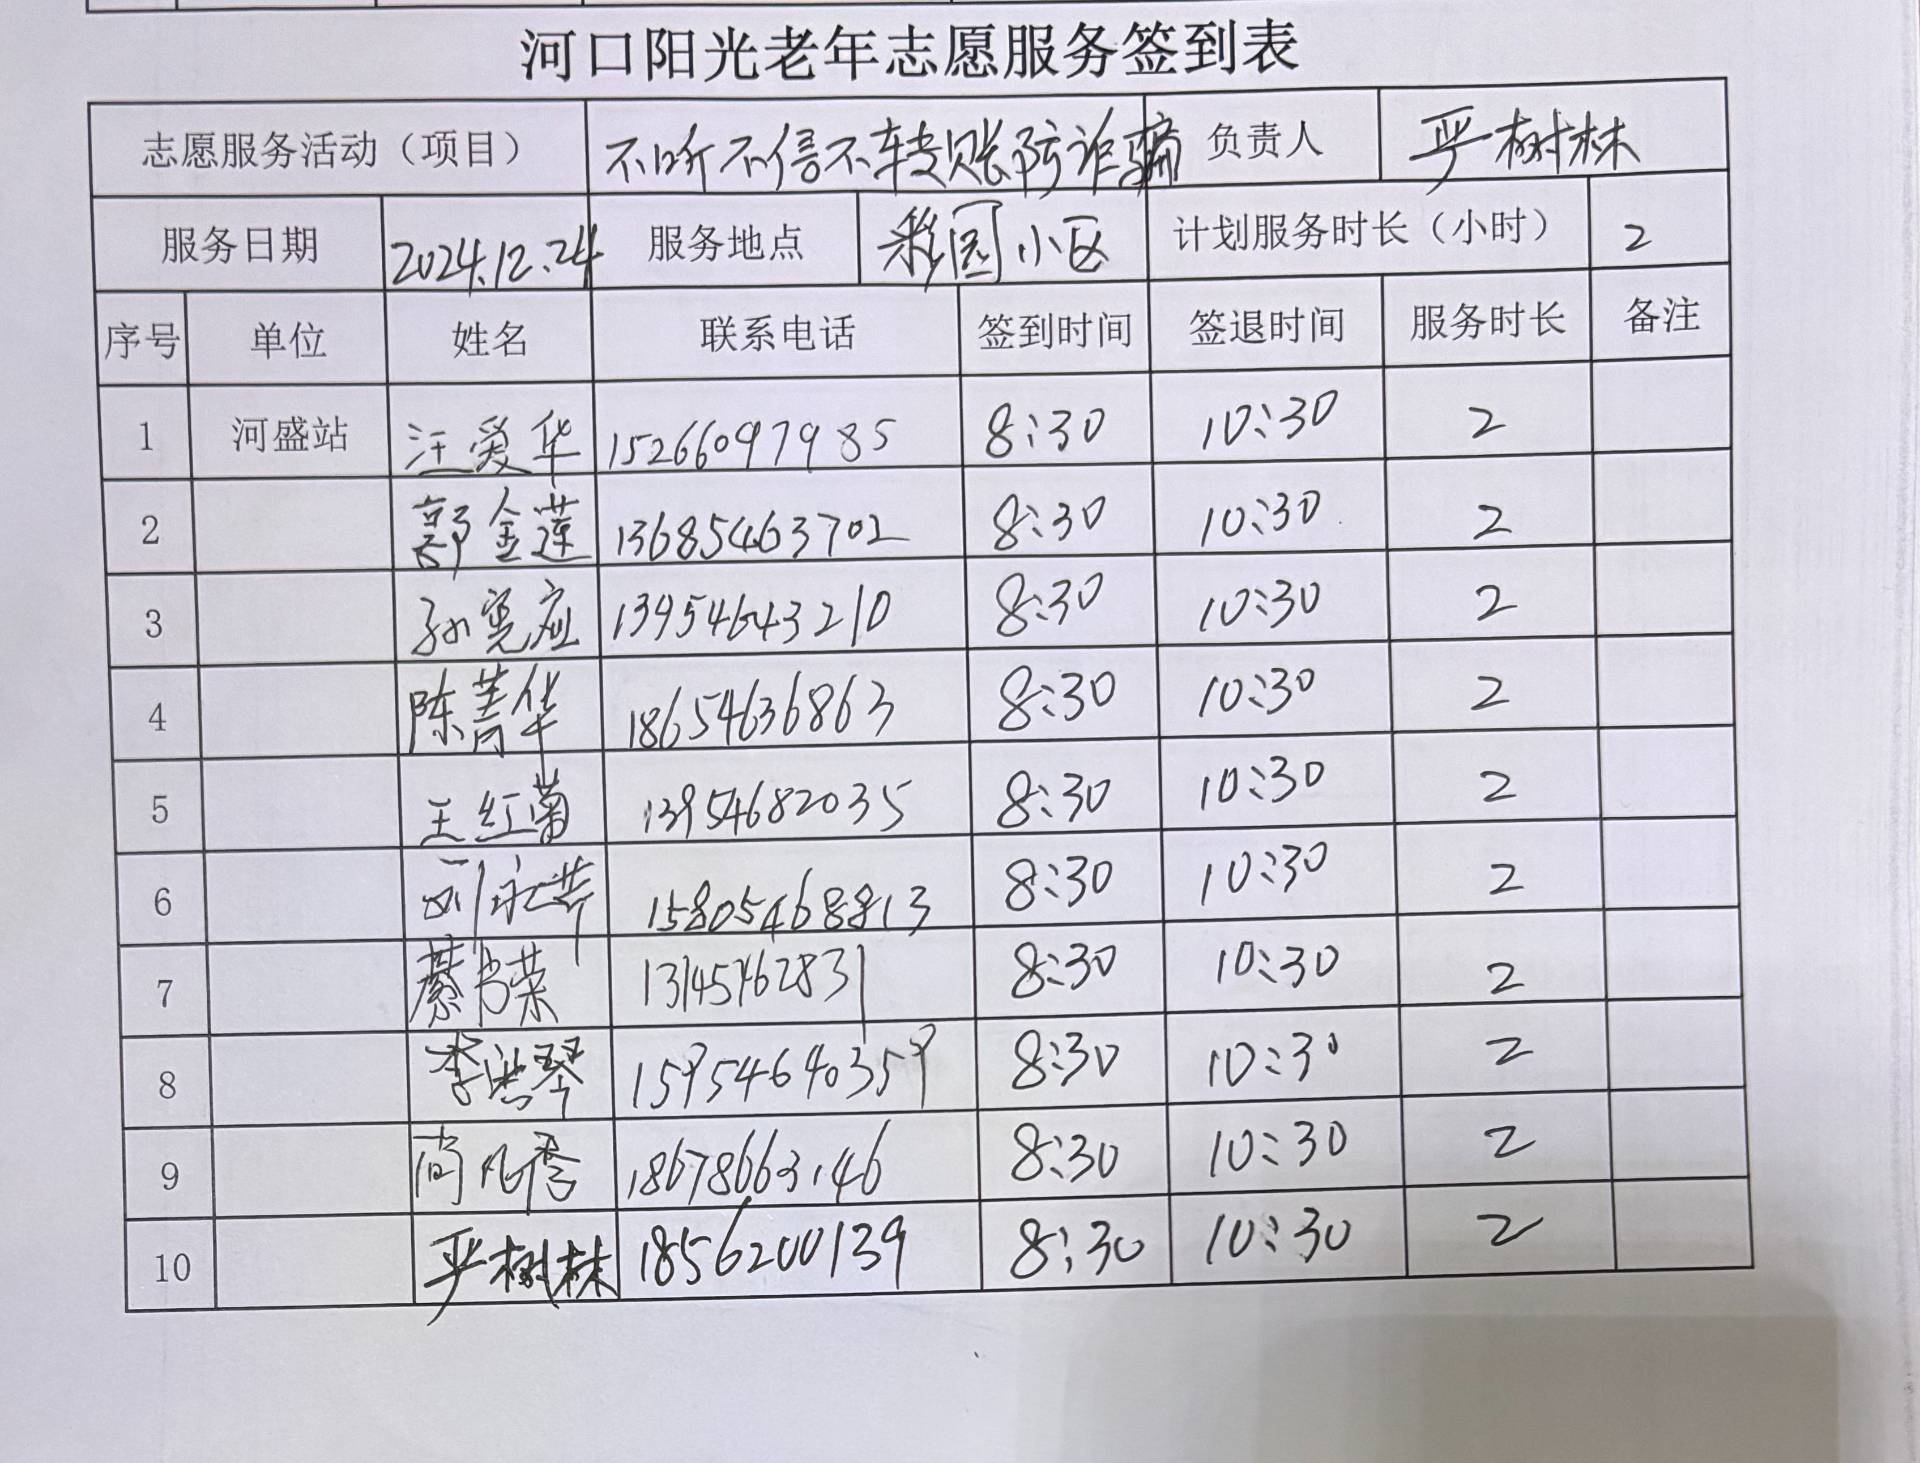 河口阳光老年志愿服务签到表
志愿服务活动（项目） 不听不信不转账防诈骗 负责人 严树林
服务日期 2024.12.24 服务地点 彩园小区 计划服务时长（小时） 2
序号 单位 姓名 联系电话 签到时间 签退时间 服务时长 备注
1 河盛站 汪爱华 15266097985 8:30 10:30 2
2 郭金莲 13685463702 8:30 10:30 2
3 孙宽应 13954643210 8:30 10:30 2
4 陈菁华 18654636863 8:30 10:30 2
5 王红蕾 13954682035 8:30 10:30 2
6 刘永苹 15805468813 8:30 10:30 2
7 綦书荣 13145462831 8:30 10:30 2
8 李洪琴 15954640359 8:30 10:30 2
9 18678663146 8:30 10:30 2
10 严树林 1856200139 8:30 10:30 2